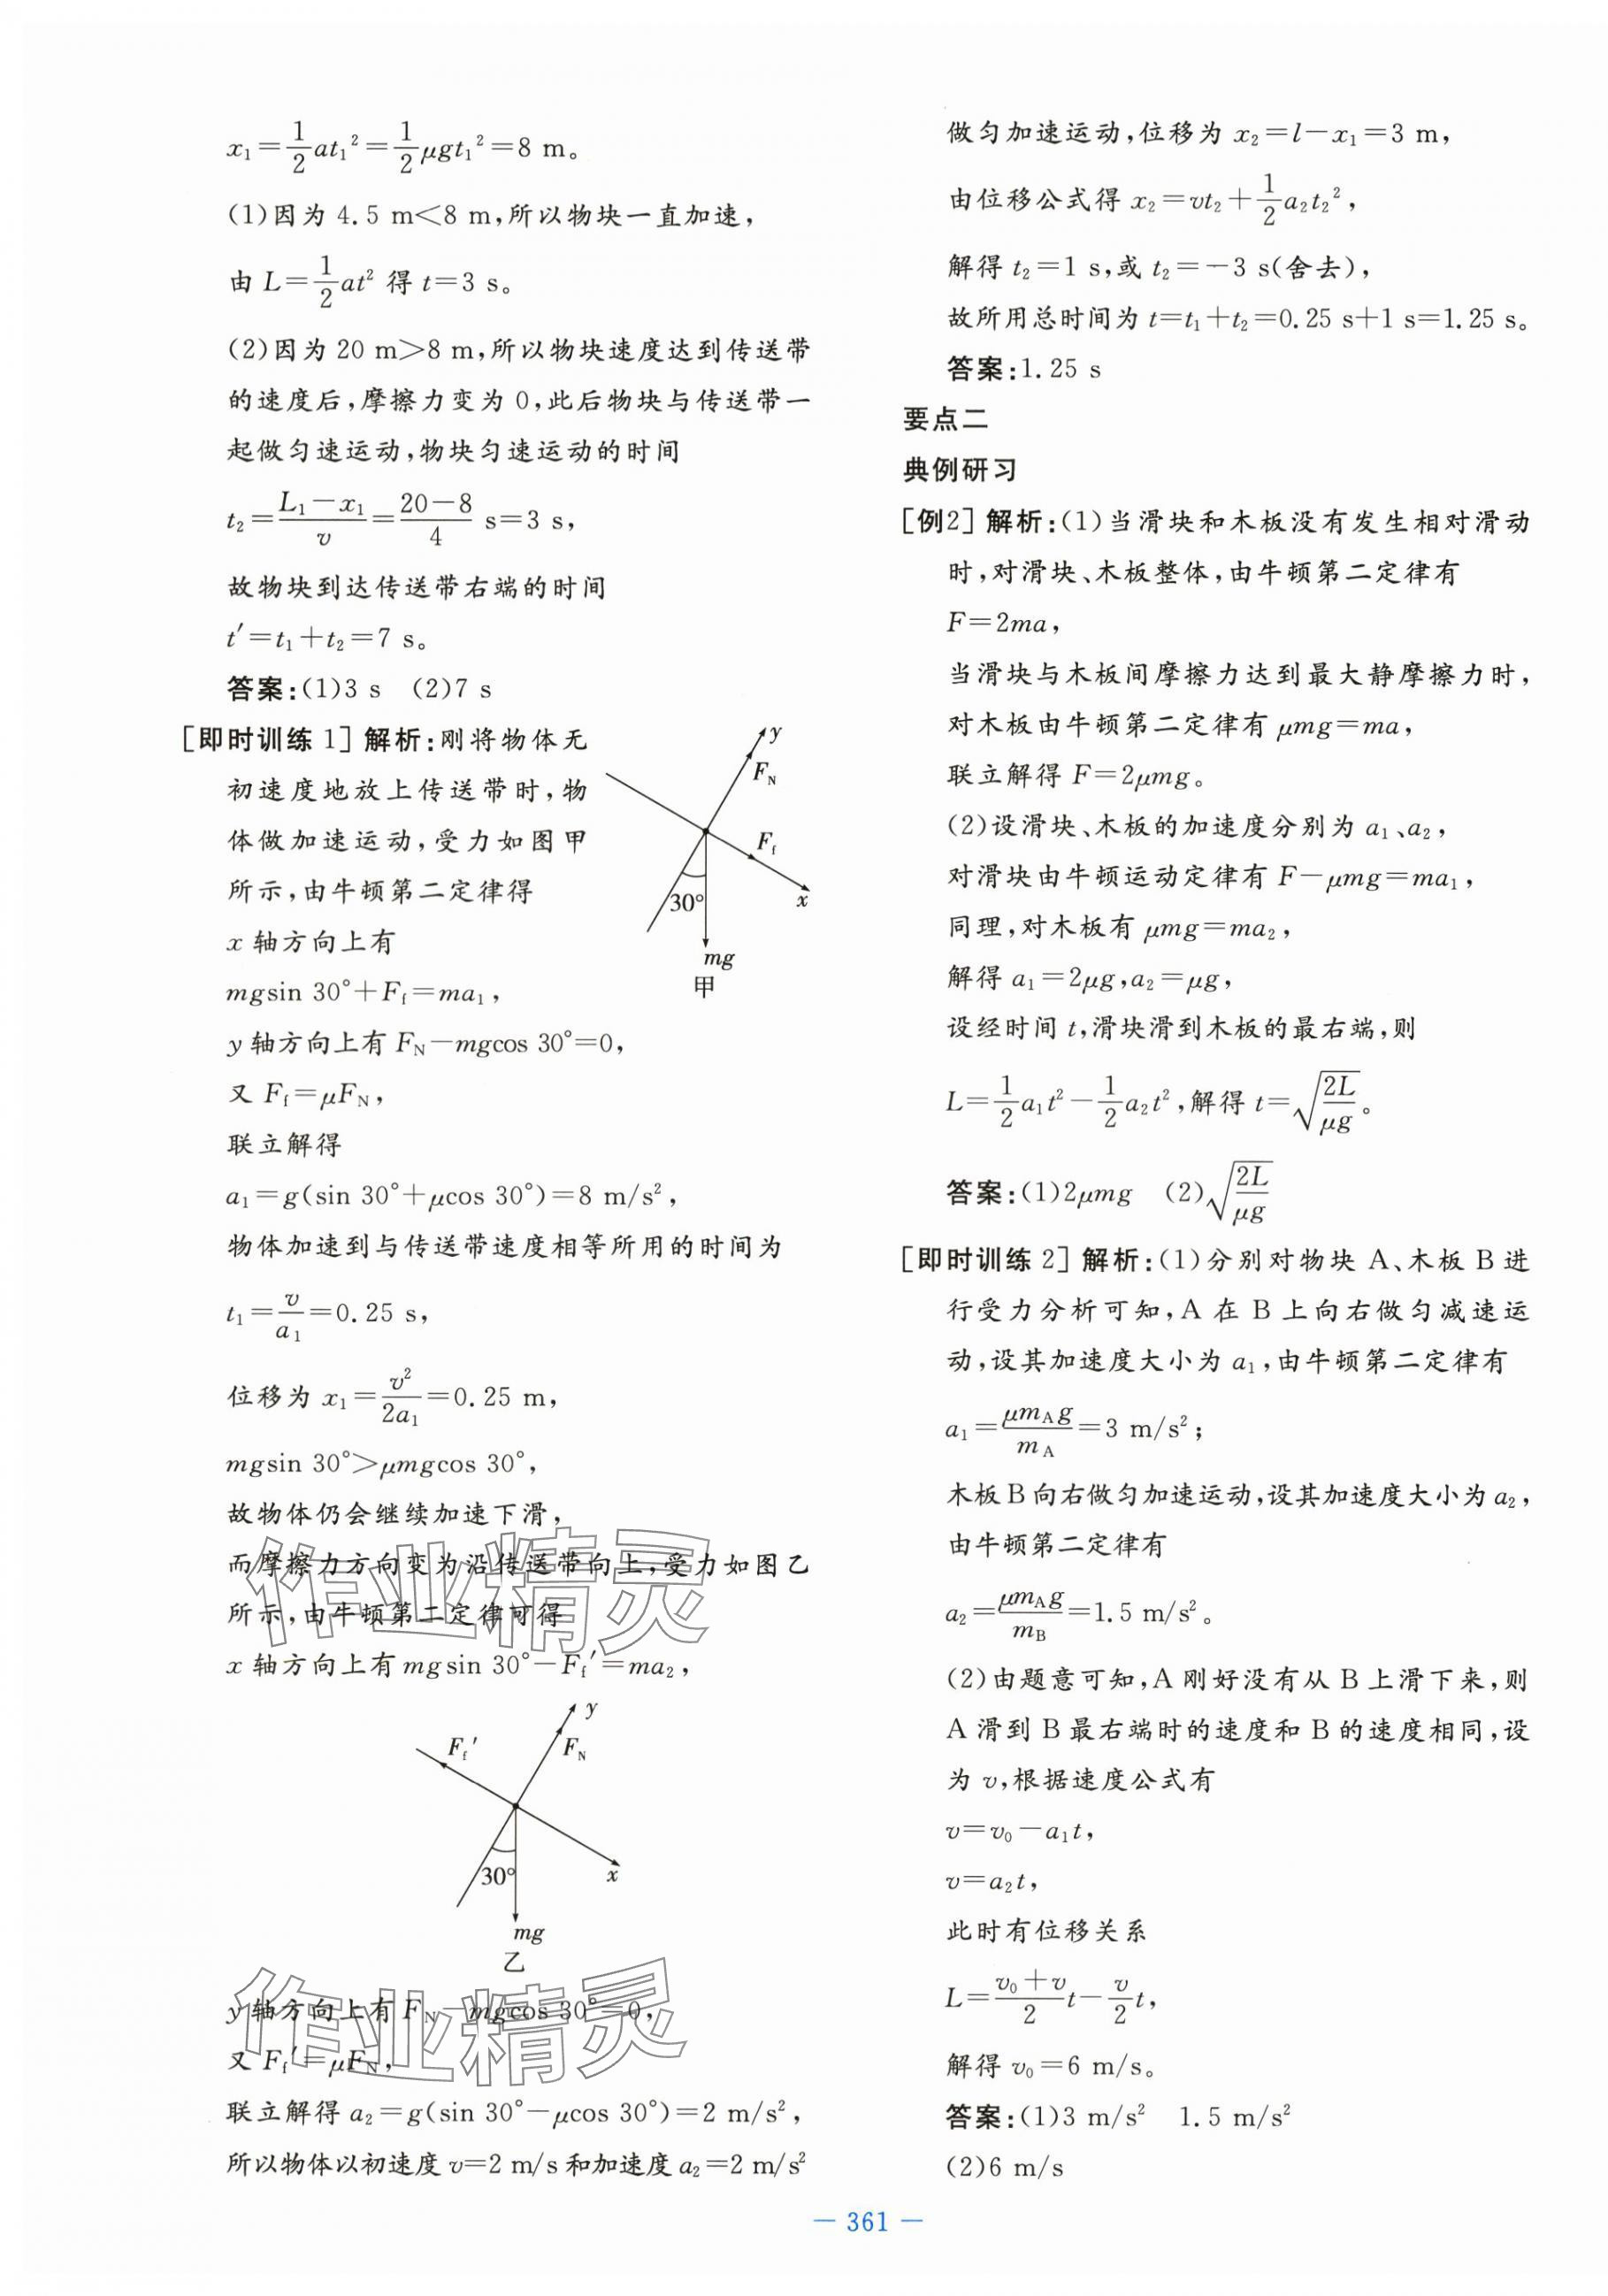 x₁=1/2at₁²=1/2μgt₁²=8 m。
(1)因为 4.5 m<8 m,所以物块一直加速,
由 L=1/2at² 得 t=3 s。
(2)因为 20 m>8 m,所以物块速度达到传送带
的速度后,摩擦力变为 0,此后物块与传送带一
起做匀速运动,物块匀速运动的时间
t₂=(L₁-x₁)/v=(20-8)/4 s=3 s,
故物块到达传送带右端的时间
t′=t₁+t₂=7 s。
答案:(1)3 s (2)7 s
[即时训练 1] 解析:刚将物体无
初速度地放上传送带时,物
体做加速运动,受力如图甲
所示,由牛顿第二定律得
x 轴方向上有
mgsin 30°+Ff=ma₁,
y 轴方向上有 FN-mgcos 30°=0,
又 Ff=μFN,
联立解得
a₁=g(sin 30°+μcos 30°)=8 m/s²,
物体加速到与传送带速度相等所用的时间为
t₁=v/a₁=0.25 s,
位移为 x₁=v²/2a₁=0.25 m,
mgsin 30°>μmgcos 30°,
故物体仍会继续加速下滑,
而摩擦力方向变为沿传送带向上,受力如图乙
所示,由牛顿第二定律可得
x 轴方向上有 mgsin 30°-Ff′=ma₂,
y
FN
Ff
30°
x
mg
甲
y
Ff′
FN
30°
x
mg
乙
y 轴方向上有 FN-mgcos 30°=0,
又 Ff′=μFN,
联立解得 a₂=g(sin 30°-μcos 30°)=2 m/s²,
所以物体以初速度 v=2 m/s 和加速度 a₂=2 m/s²
做匀加速运动,位移为 x₂=l-x₁=3 m,
由位移公式得 x₂=vt₂+1/2a₂t₂²,
解得 t₂=1 s,或 t₂=-3 s(舍去),
故所用总时间为 t=t₁+t₂=0.25 s+1 s=1.25 s。
答案:1.25 s
要点二
典例研习
[例2] 解析:(1)当滑块和木板没有发生相对滑动
时,对滑块、木板整体,由牛顿第二定律有
F=2ma,
当滑块与木板间摩擦力达到最大静摩擦力时,
对木板由牛顿第二定律有 μmg=ma,
联立解得 F=2μmg。
(2)设滑块、木板的加速度分别为 a₁、a₂,
对滑块由牛顿运动定律有 F-μmg=ma₁,
同理,对木板有 μmg=ma₂,
解得 a₁=2μg,a₂=μg,
设经时间 t,滑块滑到木板的最右端,则
L=1/2a₁t²-1/2a₂t²,解得 t=√(2L/μg)。
答案:(1)2μmg (2)√(2L/μg)
[即时训练 2] 解析:(1)分别对物块 A、木板 B 进
行受力分析可知,A 在 B 上向右做匀减速运
动,设其加速度大小为 a₁,由牛顿第二定律有
a₁=μmAg/mA=3 m/s²;
木板 B 向右做匀加速运动,设其加速度大小为 a₂,
由牛顿第二定律有
a₂=μmAg/mB=1.5 m/s²。
(2)由题意可知,A 刚好没有从 B 上滑下来,则
A 滑到 B 最右端时的速度和 B 的速度相同,设
为 v,根据速度公式有
v=v₀-a₁t,
v=a₂t,
此时有位移关系
L=(v₀+v)/2 t-v/2 t,
解得 v₀=6 m/s。
答案:(1)3 m/s² 1.5 m/s²
(2)6 m/s
作业精灵
作业精灵
— 361 —